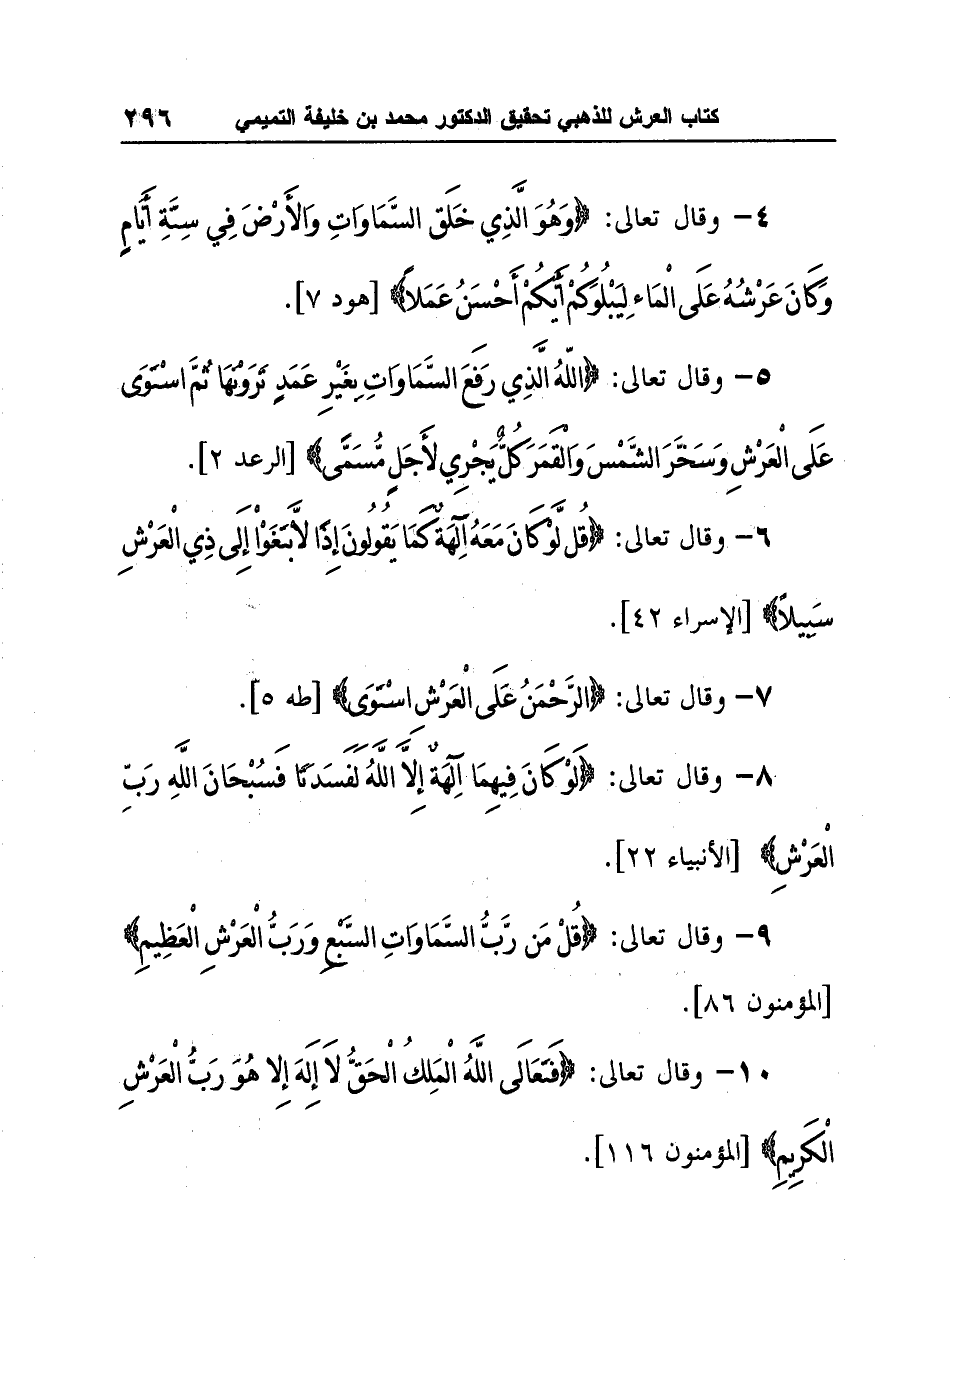 كتاب العرش للذهبي تحقيق الدكتور محمد بن خليفة التميمي ٢٩٦
٤- وقال تعالى: ﴿وَهُوَ الَّذِي خَلَق السَّمَاوَاتِ وَالأَرْضَ فِي سِتَّةِ أَيَّامٍ
وَكَانَ عَرْشُهُ عَلَى الْمَاء لِيَبْلُوَكُمْ أَيُّكُمْ أَحْسَنُ عَمَلاً﴾ [هود ٧].
٥- وقال تعالى: ﴿اللّهُ الَّذِي رَفَعَ السَّمَاوَاتِ بِغَيْرِ عَمَدٍ تَرَوْنَهَا ثُمَّ اسْتَوَى
عَلَى الْعَرْشِ وَسَخَّرَ الشَّمْسَ وَالْقَمَرَ كُلٌّ يَجْرِي لأَجَلٍ مُّسَمًّى﴾ [الرعد ٢].
٦- وقال تعالى: ﴿قُل لَّوْ كَانَ مَعَهُ آلِهَةٌ كَمَا يَقُولُونَ إِذًا لاَّبْتَغَوْاْ إِلَى ذِي الْعَرْشِ
سَبِيلاً﴾ [الإسراء ٤٢].
٧- وقال تعالى: ﴿الرَّحْمَنُ عَلَى الْعَرْشِ اسْتَوَى﴾ [طه ٥].
٨- وقال تعالى: ﴿لَوْ كَانَ فِيهِمَا آلِهَةٌ إِلاَّ اللَّهُ لَفَسَدَتَا فَسُبْحَانَ اللَّهِ رَبِّ
الْعَرْشِ﴾ [الأنبياء ٢٢].
٩- وقال تعالى: ﴿قُلْ مَن رَّبُّ السَّمَاوَاتِ السَّبْعِ وَرَبُّ الْعَرْشِ الْعَظِيمِ﴾
[المؤمنون ٨٦].
١٠- وقال تعالى: ﴿فَتَعَالَى اللَّهُ الْمَلِكُ الْحَقُّ لَا إِلَهَ إِلا هُوَ رَبُّ الْعَرْشِ
الْكَرِيمِ﴾ [المؤمنون ١١٦].